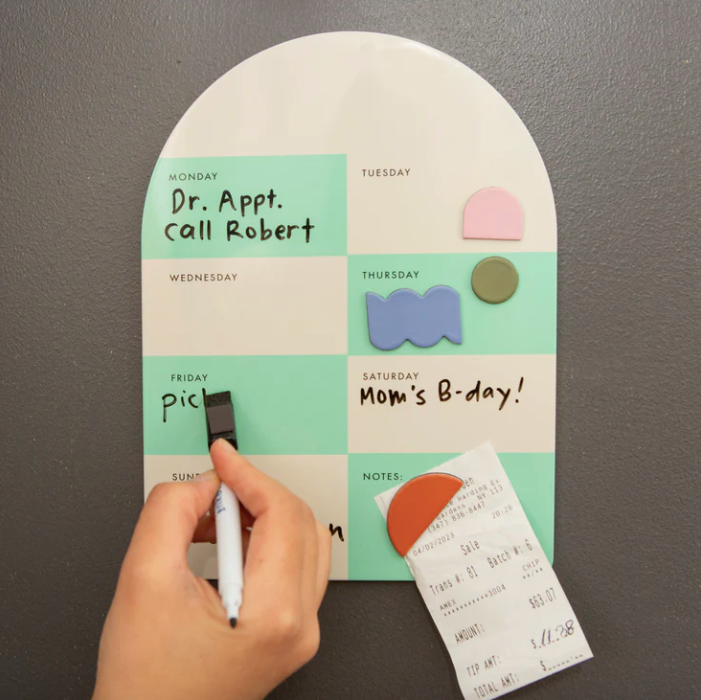 MONDAY
Dr. Appt.
call Robert
TUESDAY
WEDNESDAY
THURSDAY
FRIDAY
SATURDAY
Mom's B-day!
NOTES:
(347) 836-8447
04/02/2023
20:28
Sale
Trans #: 81 Batch #: 6
AMEX CHIP
************3004 **/**
AMOUNT: $63.07
TIP AMT: $
TOTAL AMT: $